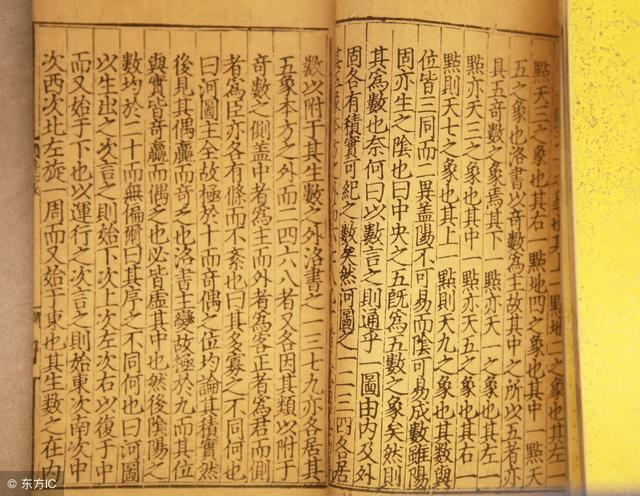 象也其上一點地二之象也其左
點天三之象也其右一點地四之象也其中一點天
五之象也洛書以奇數爲主故其中之所以五者亦
具五奇數之象焉其下一點亦天一之象也其左一
點亦天三之象也其中一點亦天五之象也其右一
點則天七之象也其上一點則天九之象也其數與
位皆三同而二異蓋陽不可易而陰可易成數雖陽
固亦生之陰也曰中央之五既爲五數之象矣然則
其爲數也奈何曰以數言之則通乎一圖由內及外
固各有積實可紀之數矣然河圖之一二三四各居
其五象本方之外
數以附于其生數之外洛書之一三七九亦各居其
五象本方之外而二四六八者又各因其類以附于
奇數之側蓋中者爲主而外者爲客正者爲君而側
者爲臣亦各有條而不紊也曰其多寡之不同何也
曰河圖主全故極於十而奇偶之位均論其積實然
後見其偶贏而奇乏也洛書主變故極於九而其位
與實皆奇贏而偶乏也必皆虛其中也然後陰陽之
數均於二十而無偏爾曰其序之不同何也曰河圖
以生出之次言之則始下次上次左次右以復于中
而又始于下也以運行之次言之則始東次南次中
次西次北左旋一周而又始于東也其生數之在內
© 东方IC